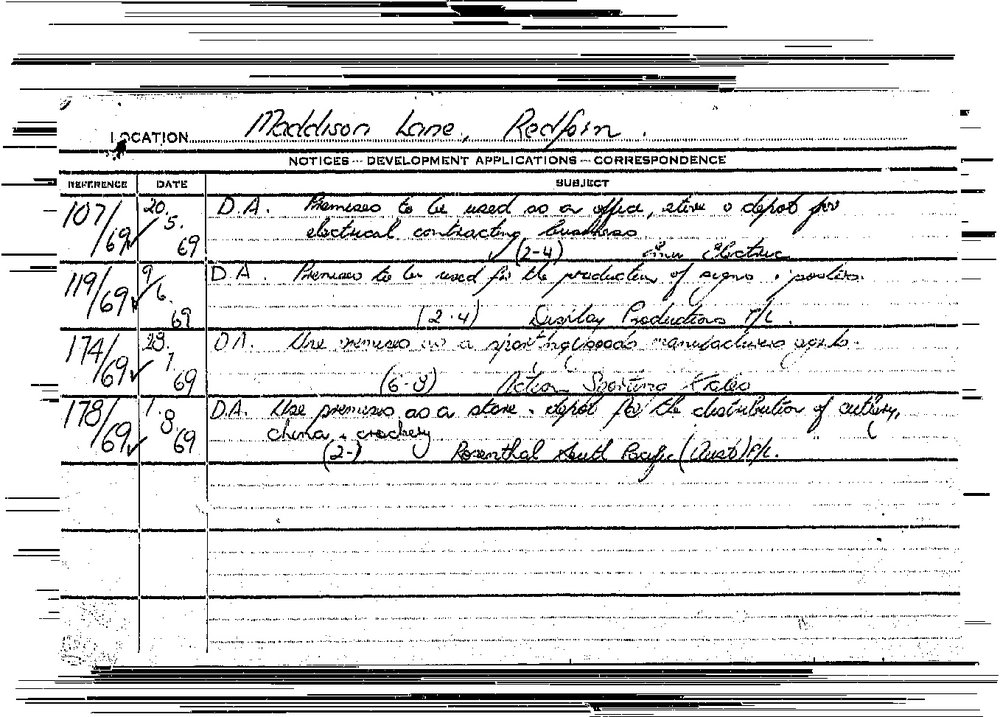 LOCATION Maddison Lane, Redfern.
NOTICES - DEVELOPMENT APPLICATIONS - CORRESPONDENCE
REFERENCE DATE SUBJECT
107/69 20.5.69 D.A. Premises to be used as a office, store & depot for
electrical contracting business
(2-4) Electric
119/69 9/6.69 D.A. Premises to be used for the production of signs & posters.
(2-4) Display Productions P/L.
174/69 23.7.69 D.A. Use premises as a sporting goods manufacturers agents.
(6-8) Action Sporting Sales
178/69 1.8.69 D.A. Use premises as a store & depot for the distribution of cutlery,
china & crockery
(2-) Rosenthal South Pacific (Aust) P/L.